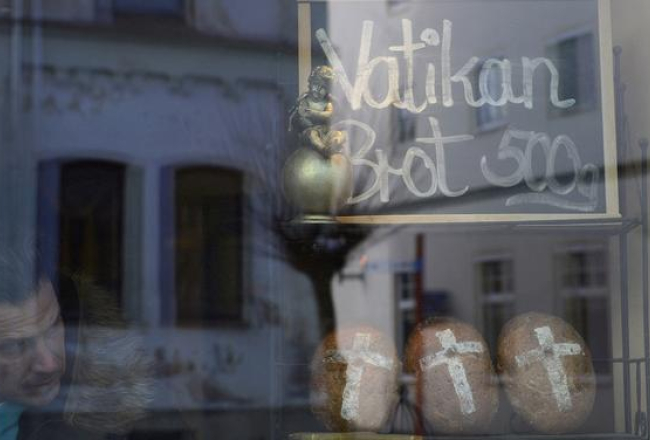 Vatikan
Brot 500g